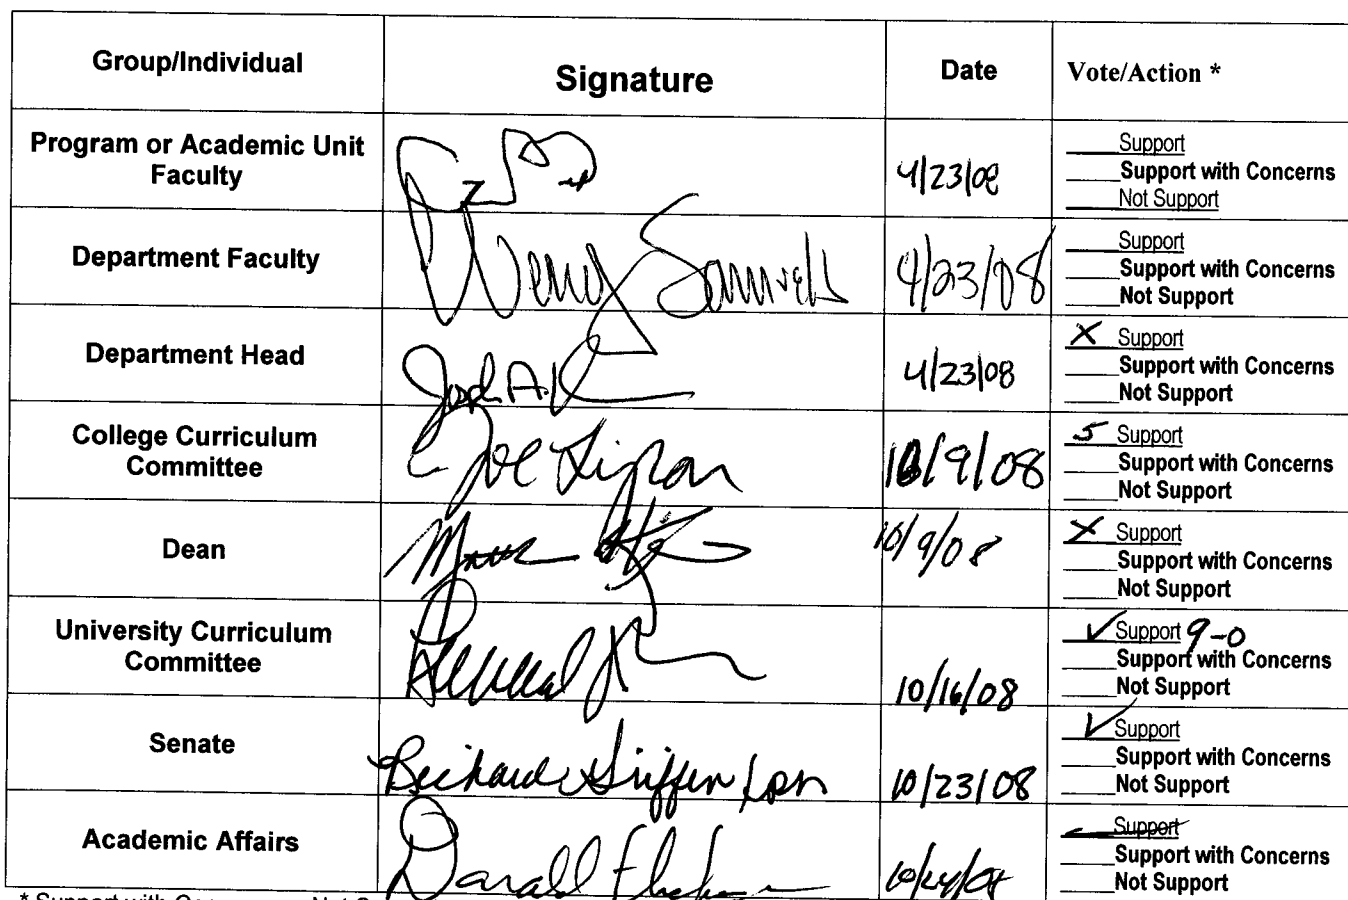 Group/Individual Signature Date Vote/Action *
Program or Academic Unit Faculty 4/23/08
____Support
____Support with Concerns
____Not Support
Department Faculty Wendy Samuels 4/23/08
____Support
____Support with Concerns
____Not Support
Department Head 4/23/08
X Support
____Support with Concerns
____Not Support
College Curriculum Committee Joe Lipton 10/9/08
5 Support
____Support with Concerns
____Not Support
Dean 10/9/08
X Support
____Support with Concerns
____Not Support
University Curriculum Committee 10/16/08
✓ Support 9-0
____Support with Concerns
____Not Support
Senate Richard Griffin 10/23/08
✓ Support
____Support with Concerns
____Not Support
Academic Affairs 10/24/08
Support
____Support with Concerns
____Not Support
* Support with